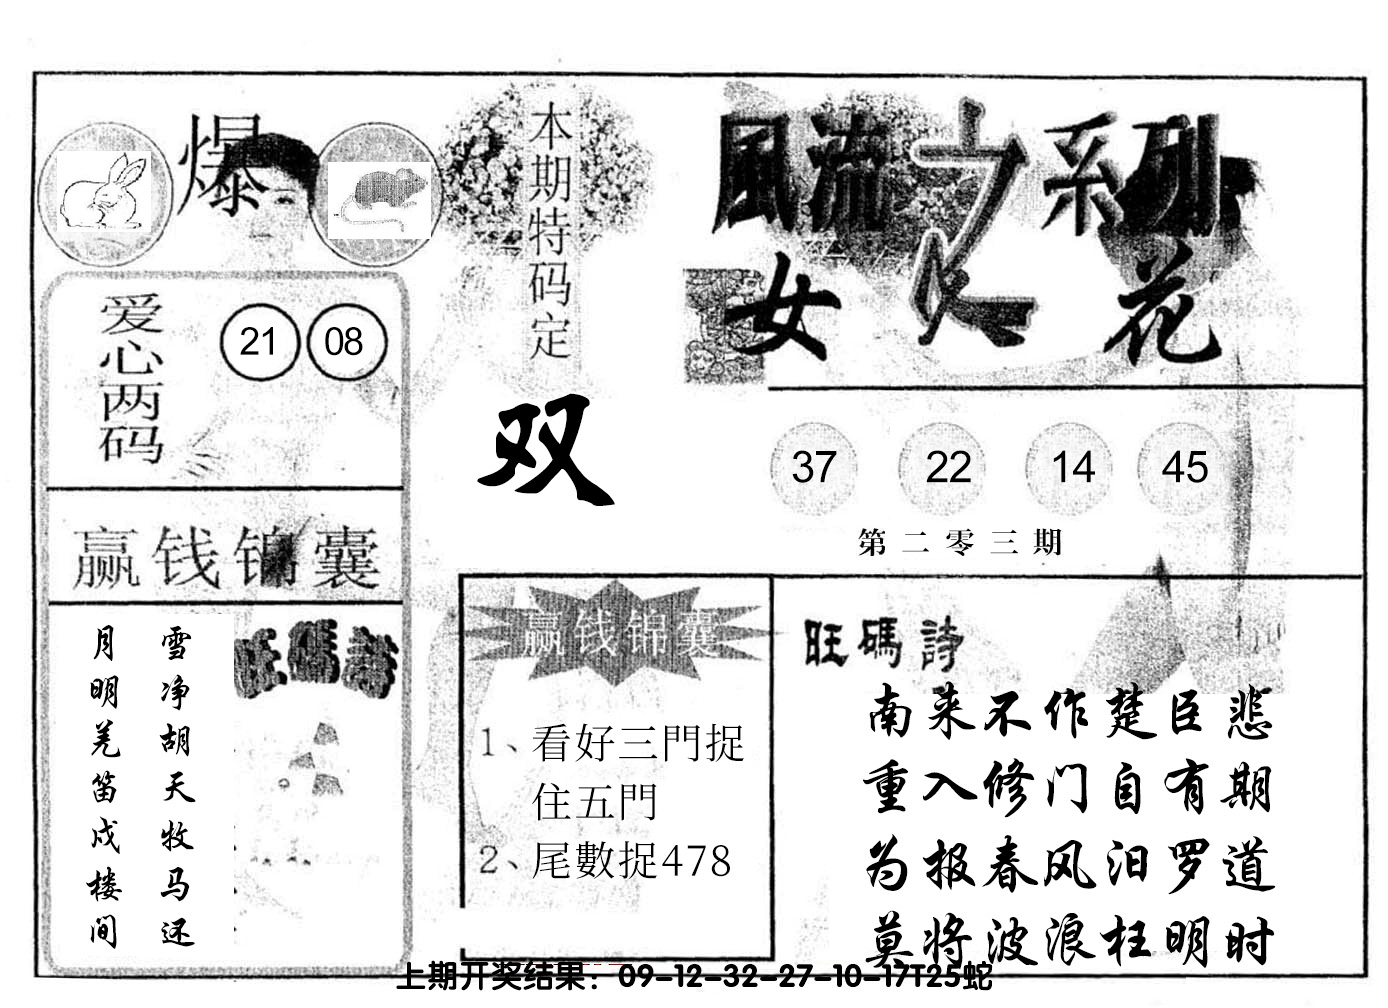 爆
本期特码定
双
風流之系列
女人花
爱心两码
21 08
37 22 14 45
第二零三期
赢钱锦囊
旺碼詩
雪净胡天牧马还
月明羌笛戍楼间
赢钱锦囊
1、看好三門捉
住五門
2、尾數捉478
旺碼詩
南来不作楚臣悲
重入修门自有期
为报春风汨罗道
莫将波浪枉明时
上期开奖结果：09-12-32-27-10-17T25蛇